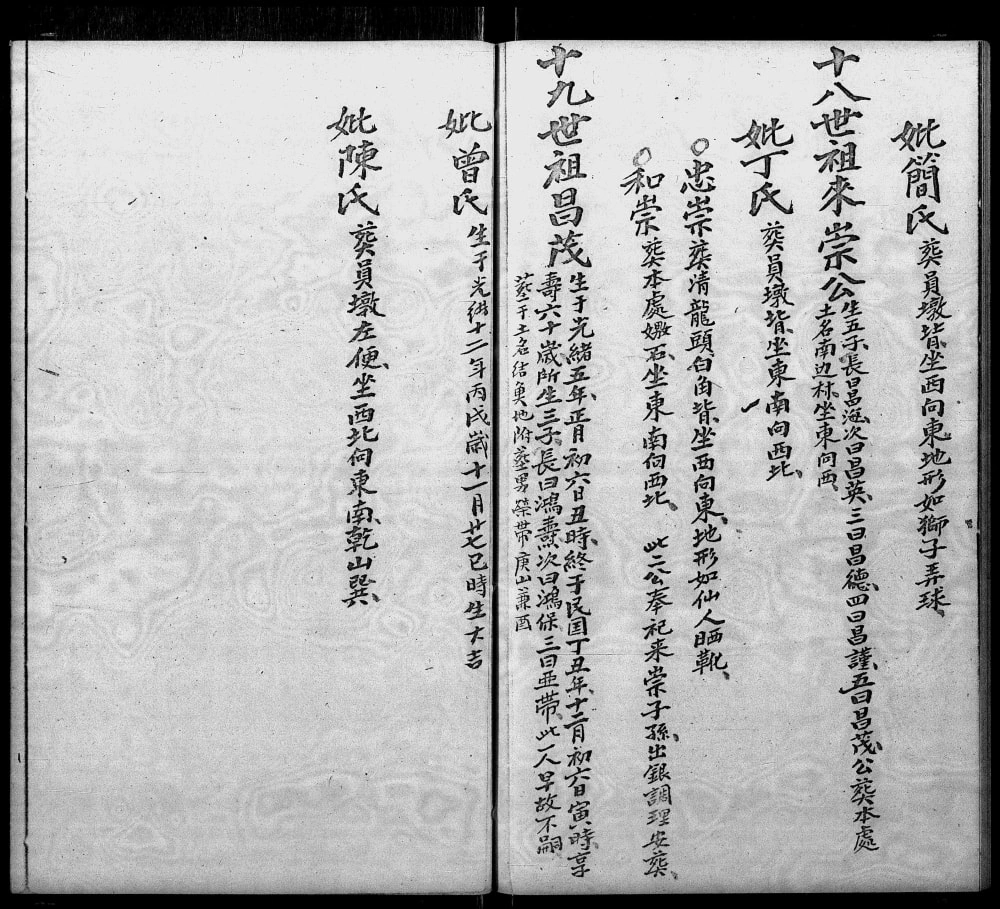 妣簡氏 葬員墩背坐西向東地形如獅子弄球
十八世祖來崇公 生五子長曰昌海次曰昌英三曰昌德四曰昌謹五曰昌茂公葬本處
土名南边林坐東向西
妣丁氏 葬員墩背坐東南向西北
忠崇 葬清龍頭白角背坐西向東地形如仙人晒靴
和崇 葬本處石坐東南向西北 此二公奉祀来崇子孫出銀調理安葬
十九世祖昌茂 生于光緒五年正月初六日丑時終于民国丁丑年十二月初六日寅時享
壽六十歲所生三子長曰鴻壽次曰鴻保三曰亜带此一人早故不嗣
葬于土名结魚地附葬男带庚山兼酉
妣曾氏 生于光緒十二年丙戌歲十一月廿七巳時生大吉
妣陳氏 葬員墩左便坐西北向東南乾山巽